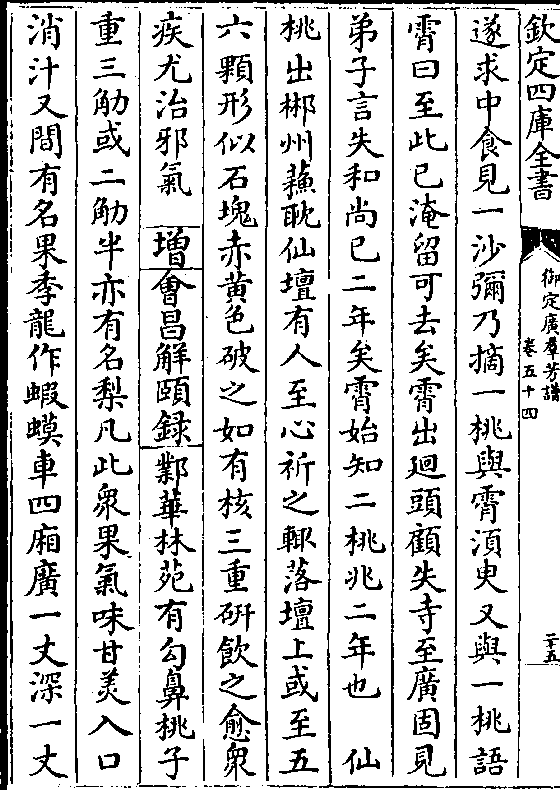 欽定四庫全書
御定廣羣芳譜
卷五十四
二十五
遂求中食見一沙彌乃摘一桃與霄須臾又與一桃語
霄曰至此已淹留可去矣霄出廻頭顧失寺至廣固見
弟子言失和尚已二年矣霄始知二桃兆二年也 仙
桃出郴州蘓耽仙壇有人至心祈之輙落壇上或至五
六顆形似石塊赤黃色破之如有核三重硏飲之愈衆
疾尤治邪氣 增會昌解頤録鄴華林苑有勾鼻桃子
重三觔或二觔半亦有名梨凡此衆果氣味甘美入口
消汁又間有名果季龍作蝦蟆車四廂廣一丈深一丈